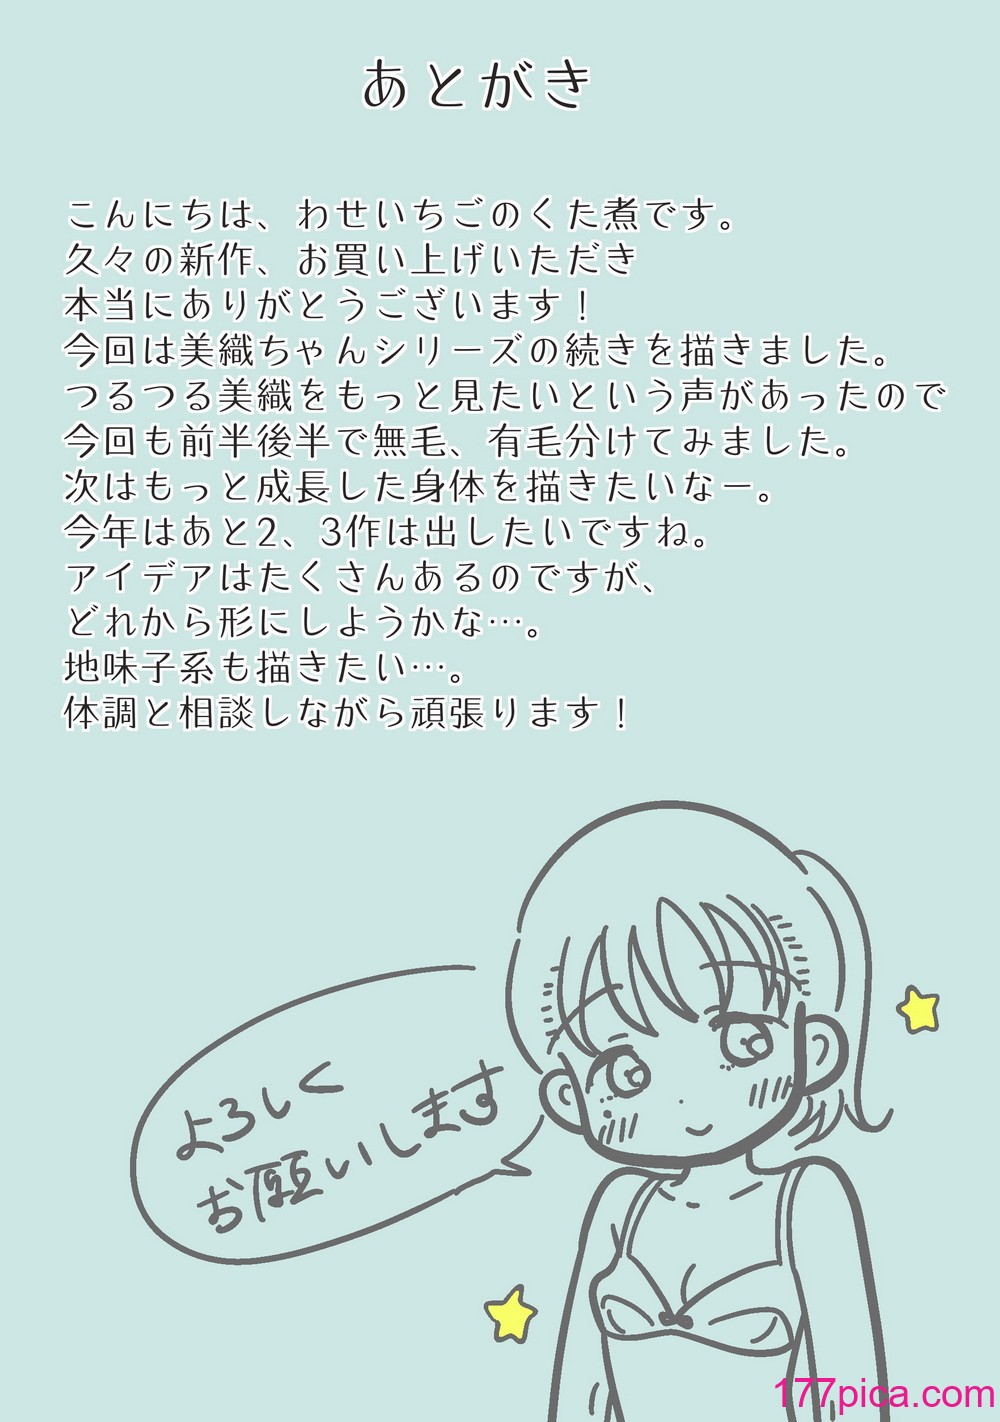 あとがき
こんにちは、わせいちごのくた煮です。
久々の新作、お買い上げいただき
本当にありがとうございます！
今回は美織ちゃんシリーズの続きを描きました。
つるつる美織をもっと見たいという声があったので
今回も前半後半で無毛、有毛分けてみました。
次はもっと成長した身体を描きたいなー。
今年はあと2、3作は出したいですね。
アイデアはたくさんあるのですが、
どれから形にしようかな…。
地味子系も描きたい…。
体調と相談しながら頑張ります！
よろしく
お願いします
177pica.com